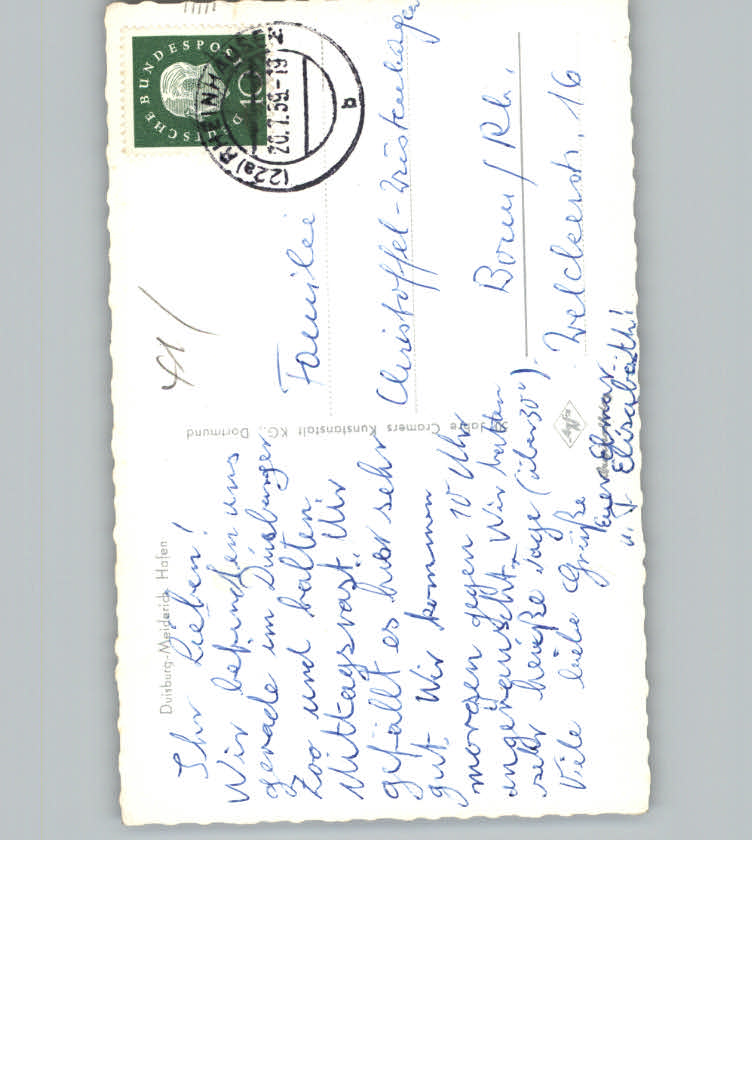 Duisburg-Meiderich Hafen
Ihr Lieben!
Wir befinden uns
gerade im Duisburger
Zoo und halten
Mittagsrast. Wir
gefällt es hier sehr
gut. Wir kommen
morgen gegen 10 Uhr
angerauscht. Wir hatten
sehr heiße Tage (über 30°).
Viele liebe Grüße
Euer Elmar
u. Elisabeth!
Jahre Cramers Kunstanstalt KG., Dortmund
Agfa
DEUTSCHE BUNDESPOST
10
(22a) RHEINHAUSEN
20.7.59.-19
b
Familie
Christoffel-Wüstenhagen
Bonn/Rh.
Welckerstr. 16